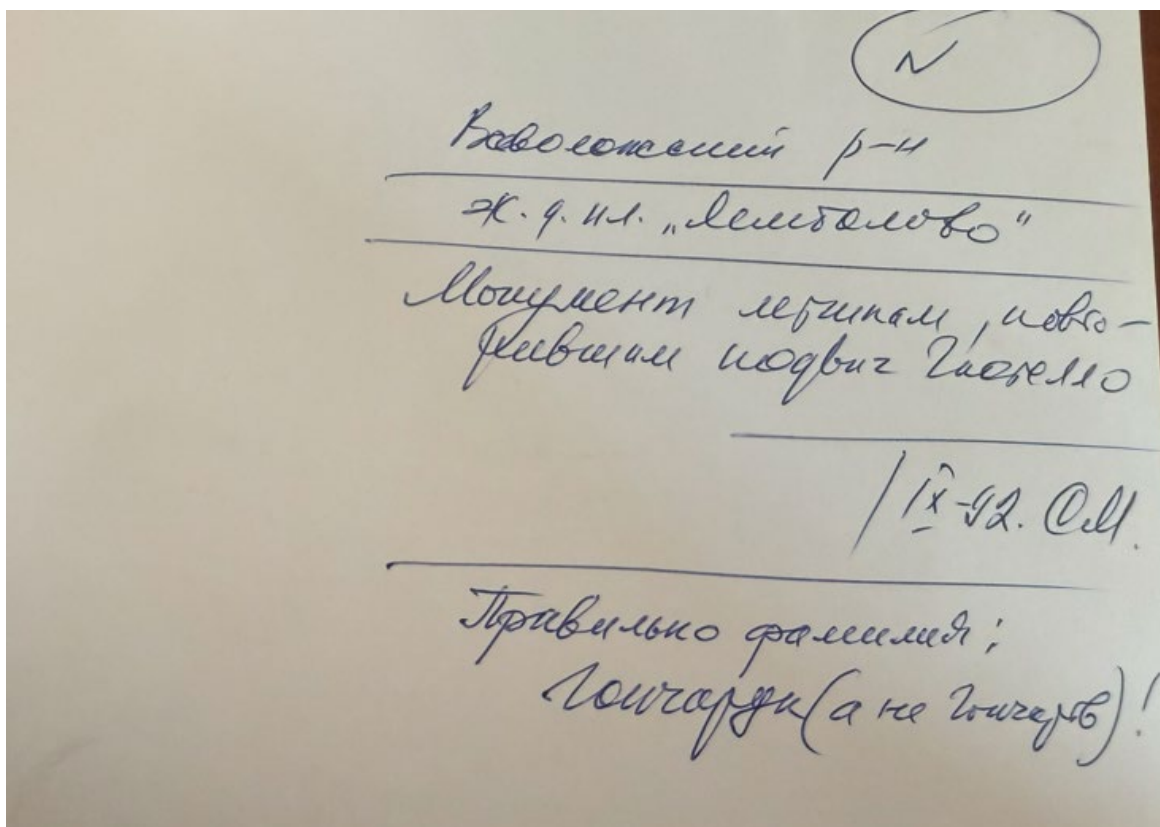 N
Всеволожский р-н
ж. д. пл. „Лемболово"
Монумент летчикам, повто-
рившим подвиг Гастелло
/ IX-92. СМ.
Правильно фамилия:
Гончарук (а не Гончаров)!